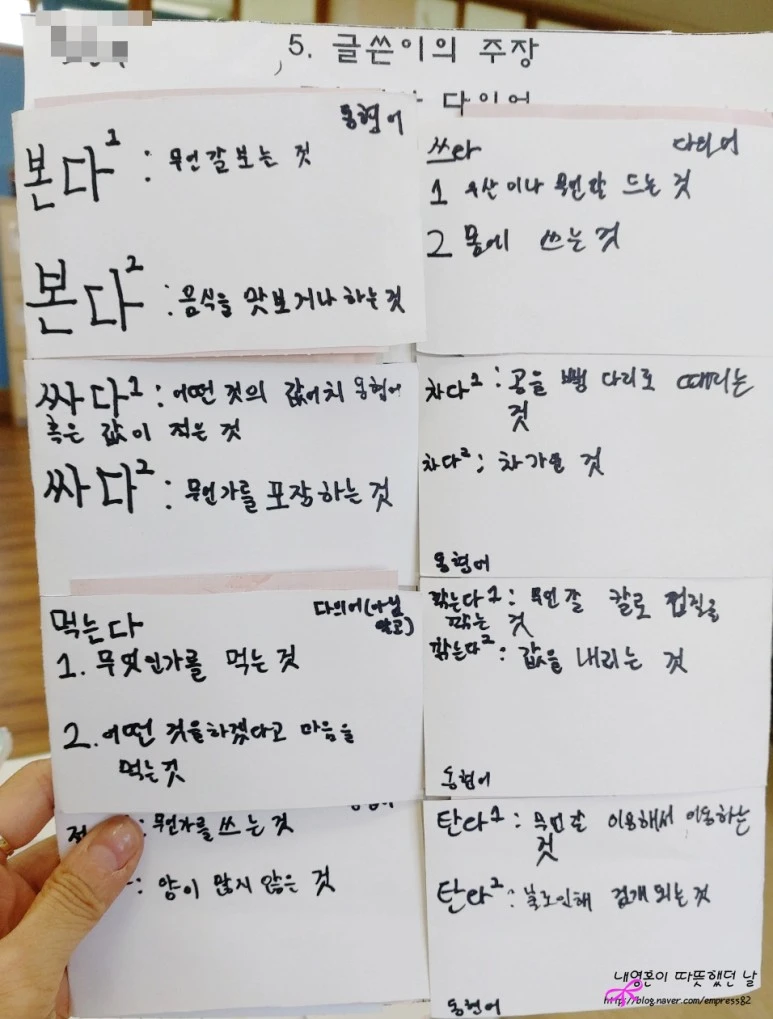 5. 글쓴이의 주장
다의어
동형어
본다¹ : 무언갈 보는 것
본다² : 음식을 맛보거나 하는 것
쓰다
다의어
1 우산이나 무언갈 드는 것
2 몸에 쓰는 것
싸다¹ : 어떤 것의 값어치 동형어
혹은 값이 적은 것
싸다² : 무언가를 포장하는 것
차다¹ : 공을 뻥 다리로 때리는
것
차다² : 차가운 것
동형어
먹는다
다의어(아님
말고)
1. 무엇인가를 먹는 것
2. 어떤 것을하겠다고 마음을
먹는것
깎는다1 : 무언갈 칼로 껍질을
깎는 것
깎는다² : 값을 내리는 것
동형어
적
: 무언가를 쓰는 것
: 양이 많지 않은 것
탄다1 : 무언갈 이용해서 이동하는
것
탄다² : 불로인해 검게 되는 것
동형어
내영혼이 따뜻했던 날
http://blog.naver.com/empress82